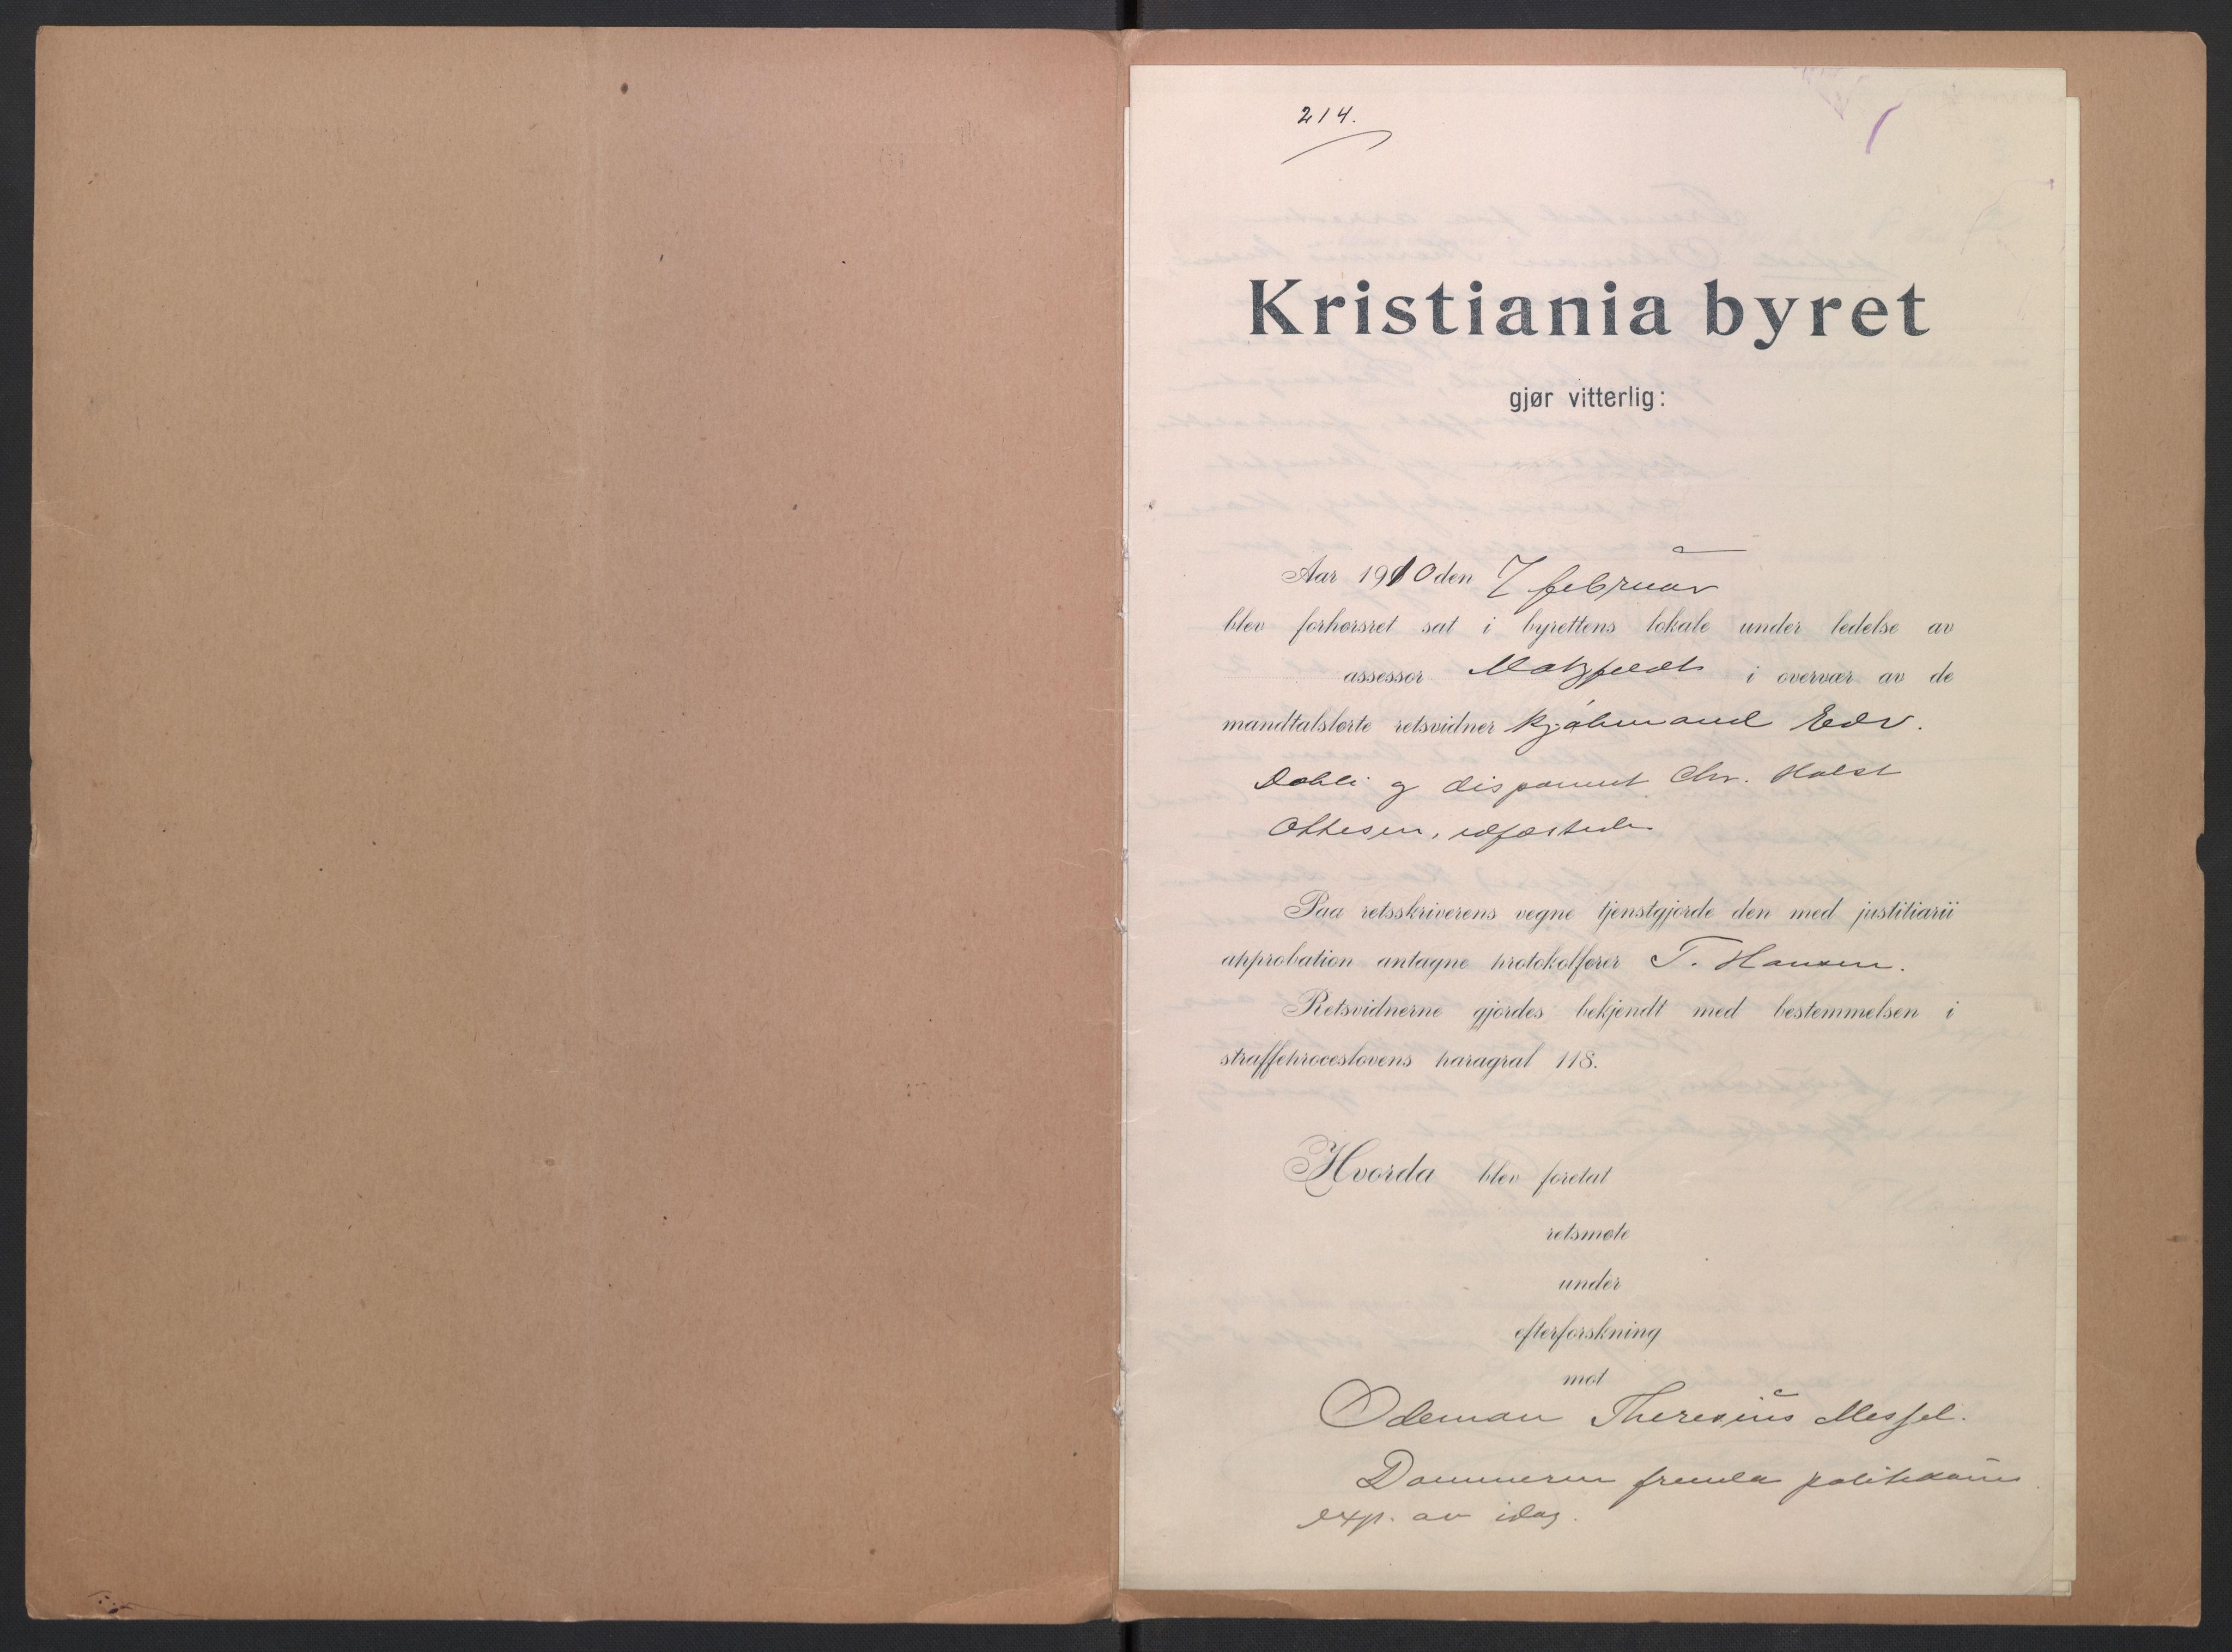 214.
Kristiania byret
gjør vitterlig:
Aar 1910 den 7 februar
blev forhørsret sat i byrettens lokale under ledelse av
assessor Motzfeldt i overvær av de
mandtalsførte retsvidner kjøbmand Edv.
Dahli og disponent Chr. Holst
Ottesen, edfæstede.
Paa retsskriverens vegne tjenstgjorde den med justitiarii
approbation antagne protokolfører T. Hansen.
Retsvidnerne gjordes bekjendt med bestemmelsen i
straffeproceslovens paragraf 118.
Hvorda blev foretat
retsmøte
under
efterforskning
mot
Odeman Theresius Messel.
Dommeren fremla politikam
exp. av idag.